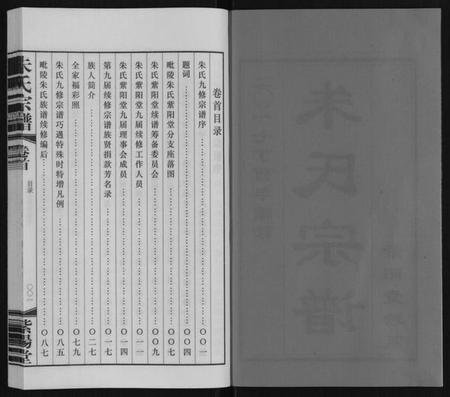 朱氏宗谱
卷首目录
朱氏九修宗谱序……〇〇一
题词……〇〇四
毗陵朱氏紫阳堂分支座落图……〇〇七
朱氏紫阳堂续谱筹备委员会……〇〇九
朱氏紫阳堂九届续修工作人员……〇一一
朱氏紫阳堂九届理事会成员……〇一四
第九届续修宗谱族贤捐款芳名录……〇一七
族人简介……〇二七
全家福彩照……〇七九
朱氏九修宗谱巧遇特殊时特增凡例……〇八五
毗陵朱氏族谱续修编后……〇八七
朱氏宗谱
卷首
目录
〇〇一
紫阳堂